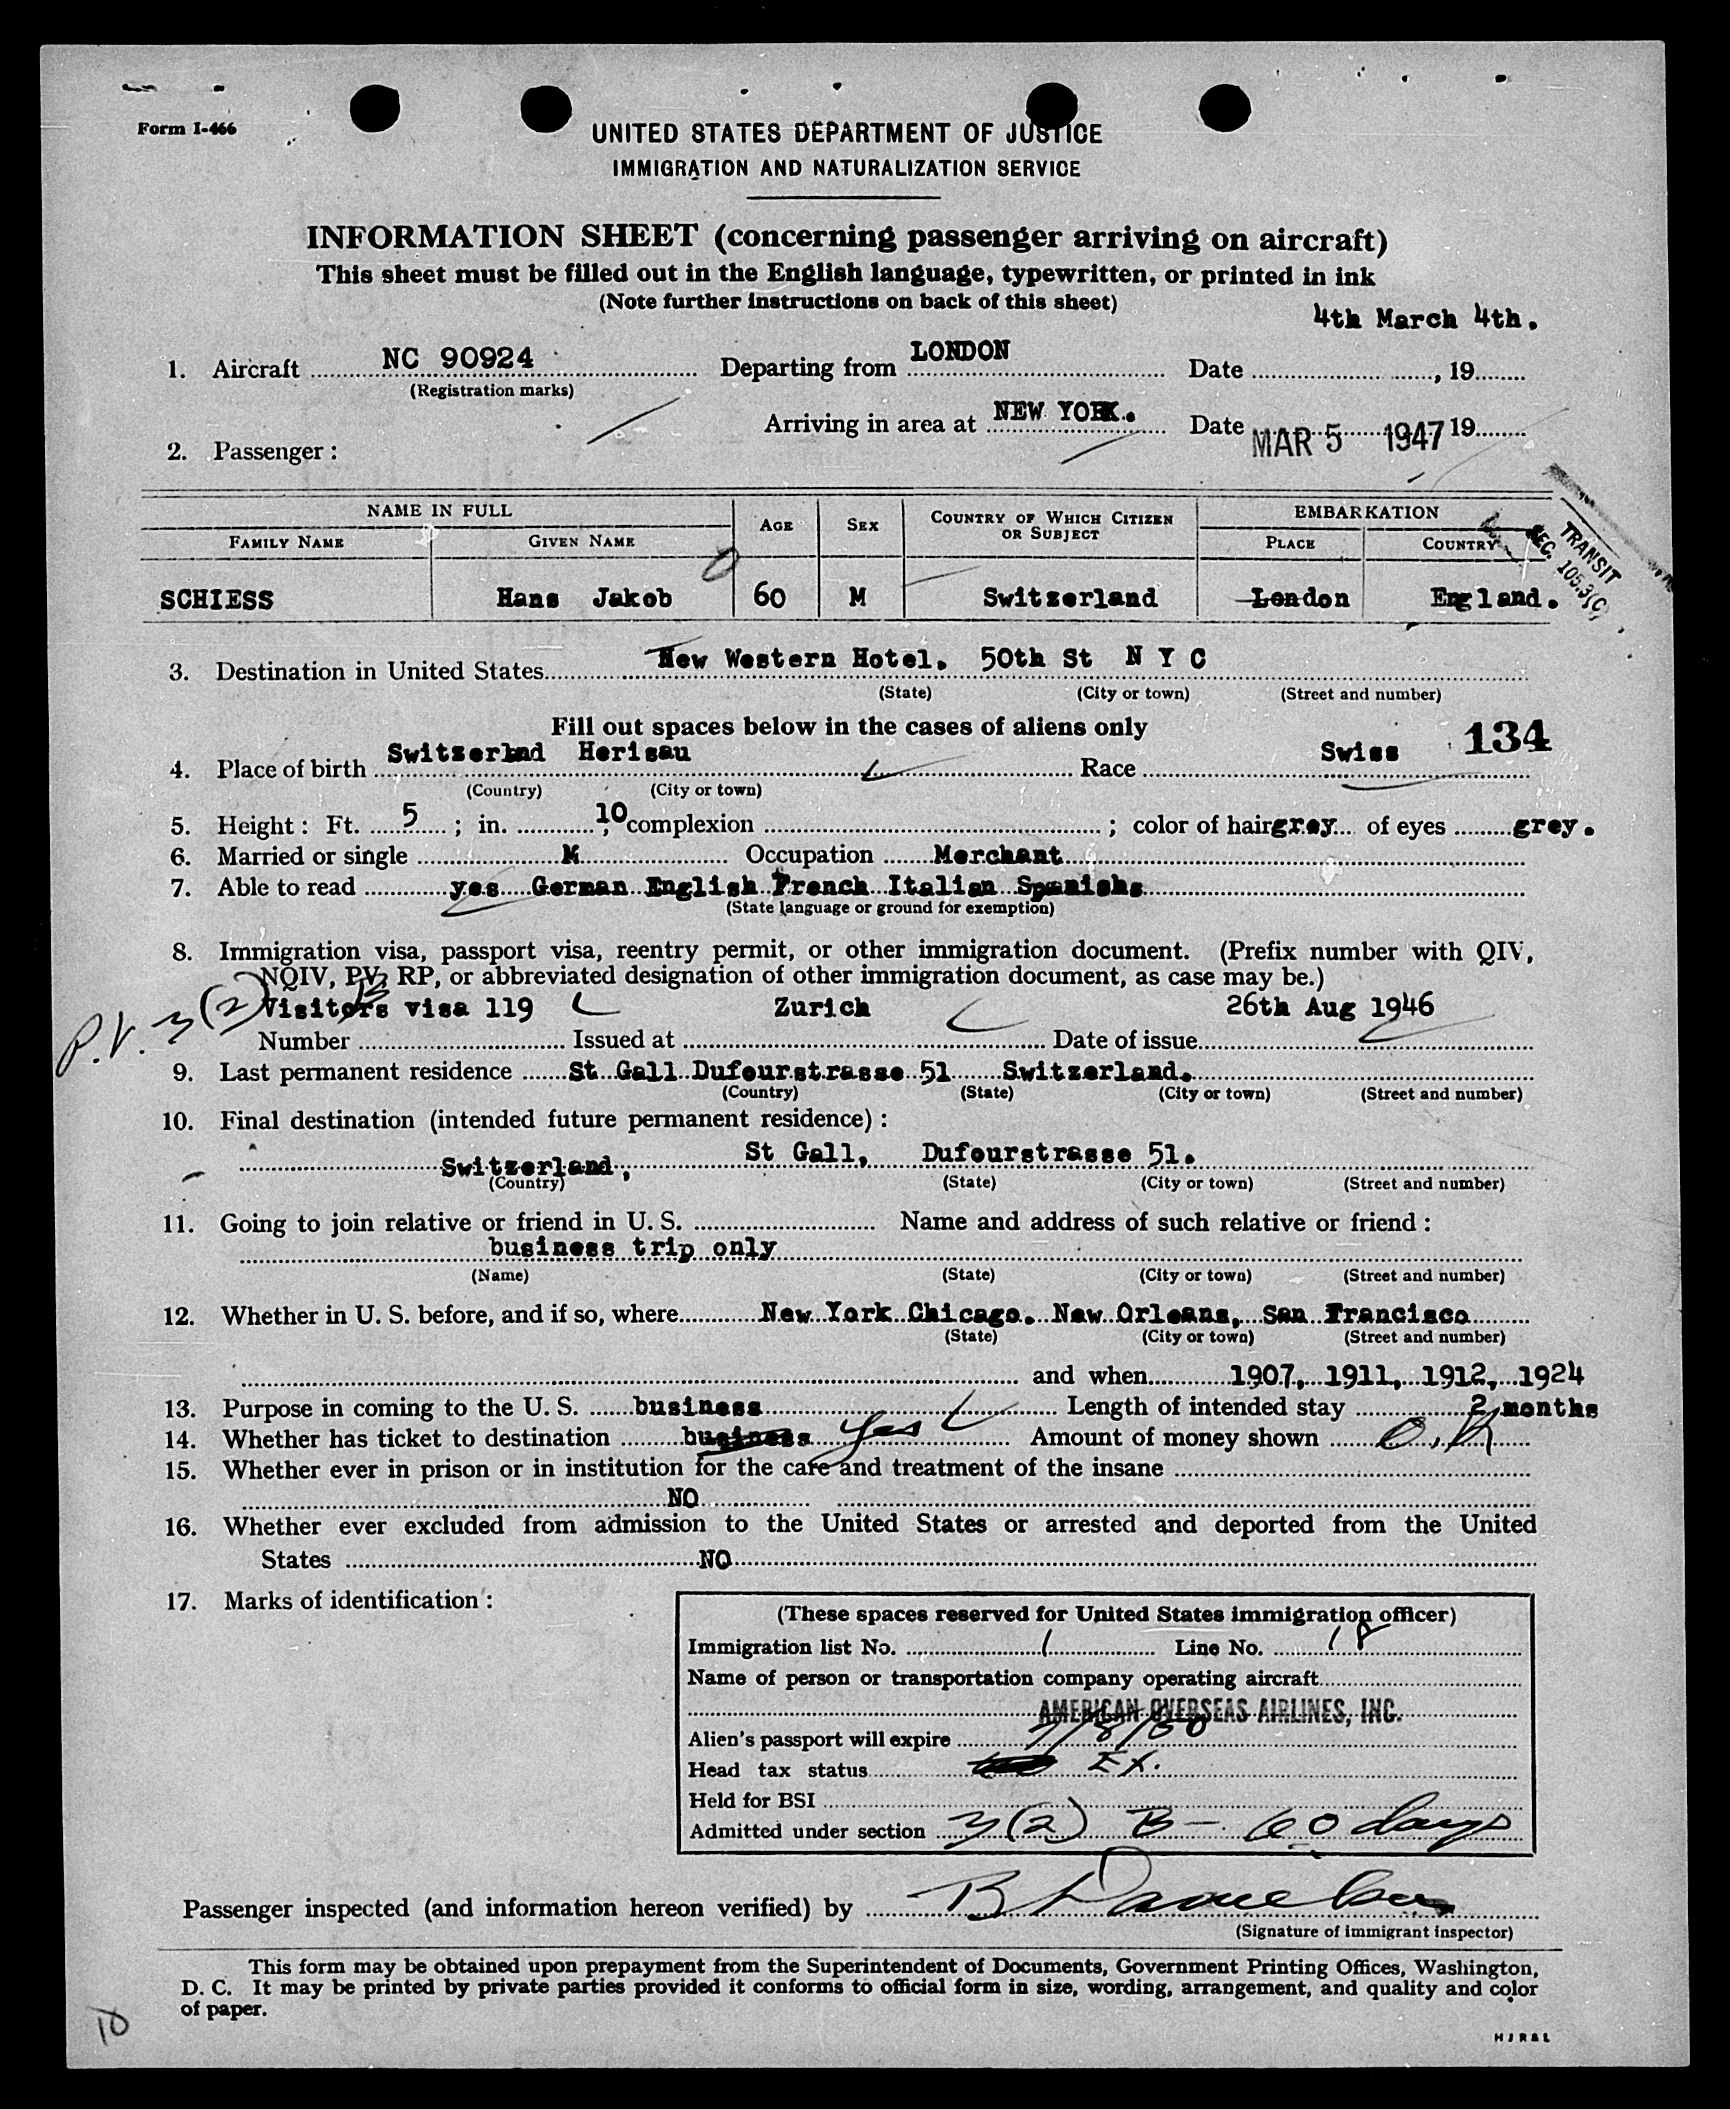 Form I-466
UNITED STATES DEPARTMENT OF JUSTICE
IMMIGRATION AND NATURALIZATION SERVICE
INFORMATION SHEET (concerning passenger arriving on aircraft)
This sheet must be filled out in the English language, typewritten, or printed in ink
(Note further instructions on back of this sheet)
4th March 4th.
1. Aircraft NC 90924 Departing from LONDON Date , 19
(Registration marks)
Arriving in area at NEW YORK. Date MAR 5 1947 19
2. Passenger :
NAME IN FULL AGE SEX COUNTRY OF WHICH CITIZEN OR SUBJECT EMBARKATION
FAMILY NAME GIVEN NAME PLACE COUNTRY
TRANSIT
SEC. 105.3(C)
SCHIESS Hans Jakob 60 M Switzerland London England.
3. Destination in United States New Western Hotel. 50th St N Y C
(State) (City or town) (Street and number)
Fill out spaces below in the cases of aliens only
134
4. Place of birth Switzerlnd Herisau Race Swiss
(Country) (City or town)
5. Height : Ft. 5 ; in. 10, complexion ; color of hair grey of eyes grey.
6. Married or single M Occupation Merchant
7. Able to read yes German English French Italian Spanishs
(State language or ground for exemption)
8. Immigration visa, passport visa, reentry permit, or other immigration document. (Prefix number with QIV,
NQIV, PV, RP, or abbreviated designation of other immigration document, as case may be.)
P.V. 3(2) Visitors visa 119 Zurich 26th Aug 1946
Number Issued at Date of issue
9. Last permanent residence St Gall Dufourstrasse 51 Switzerland.
(Country) (State) (City or town) (Street and number)
10. Final destination (intended future permanent residence) :
Switzerland, St Gall, Dufourstrasse 51.
(Country) (State) (City or town) (Street and number)
11. Going to join relative or friend in U. S. Name and address of such relative or friend :
business trip only
(Name) (State) (City or town) (Street and number)
12. Whether in U. S. before, and if so, where New York Chicago. New Orleans, San Francisco
(State) (City or town) (Street and number)
and when 1907, 1911, 1912, 1924
13. Purpose in coming to the U. S. business Length of intended stay 2 months
14. Whether has ticket to destination business yes Amount of money shown O.K
15. Whether ever in prison or in institution for the care and treatment of the insane
NO
16. Whether ever excluded from admission to the United States or arrested and deported from the United
States NO
17. Marks of identification :
(These spaces reserved for United States immigration officer)
Immigration list No. 1 Line No. 18
Name of person or transportation company operating aircraft
AMERICAN OVERSEAS AIRLINES, INC.
Alien's passport will expire 7/8/50
Head tax status Ex.
Held for BSI
Admitted under section 3(2) B - 60 days
Passenger inspected (and information hereon verified) by B
(Signature of immigrant inspector)
This form may be obtained upon prepayment from the Superintendent of Documents, Government Printing Offices, Washington,
D. C. It may be printed by private parties provided it conforms to official form in size, wording, arrangement, and quality and color
of paper.
10
H J R & L